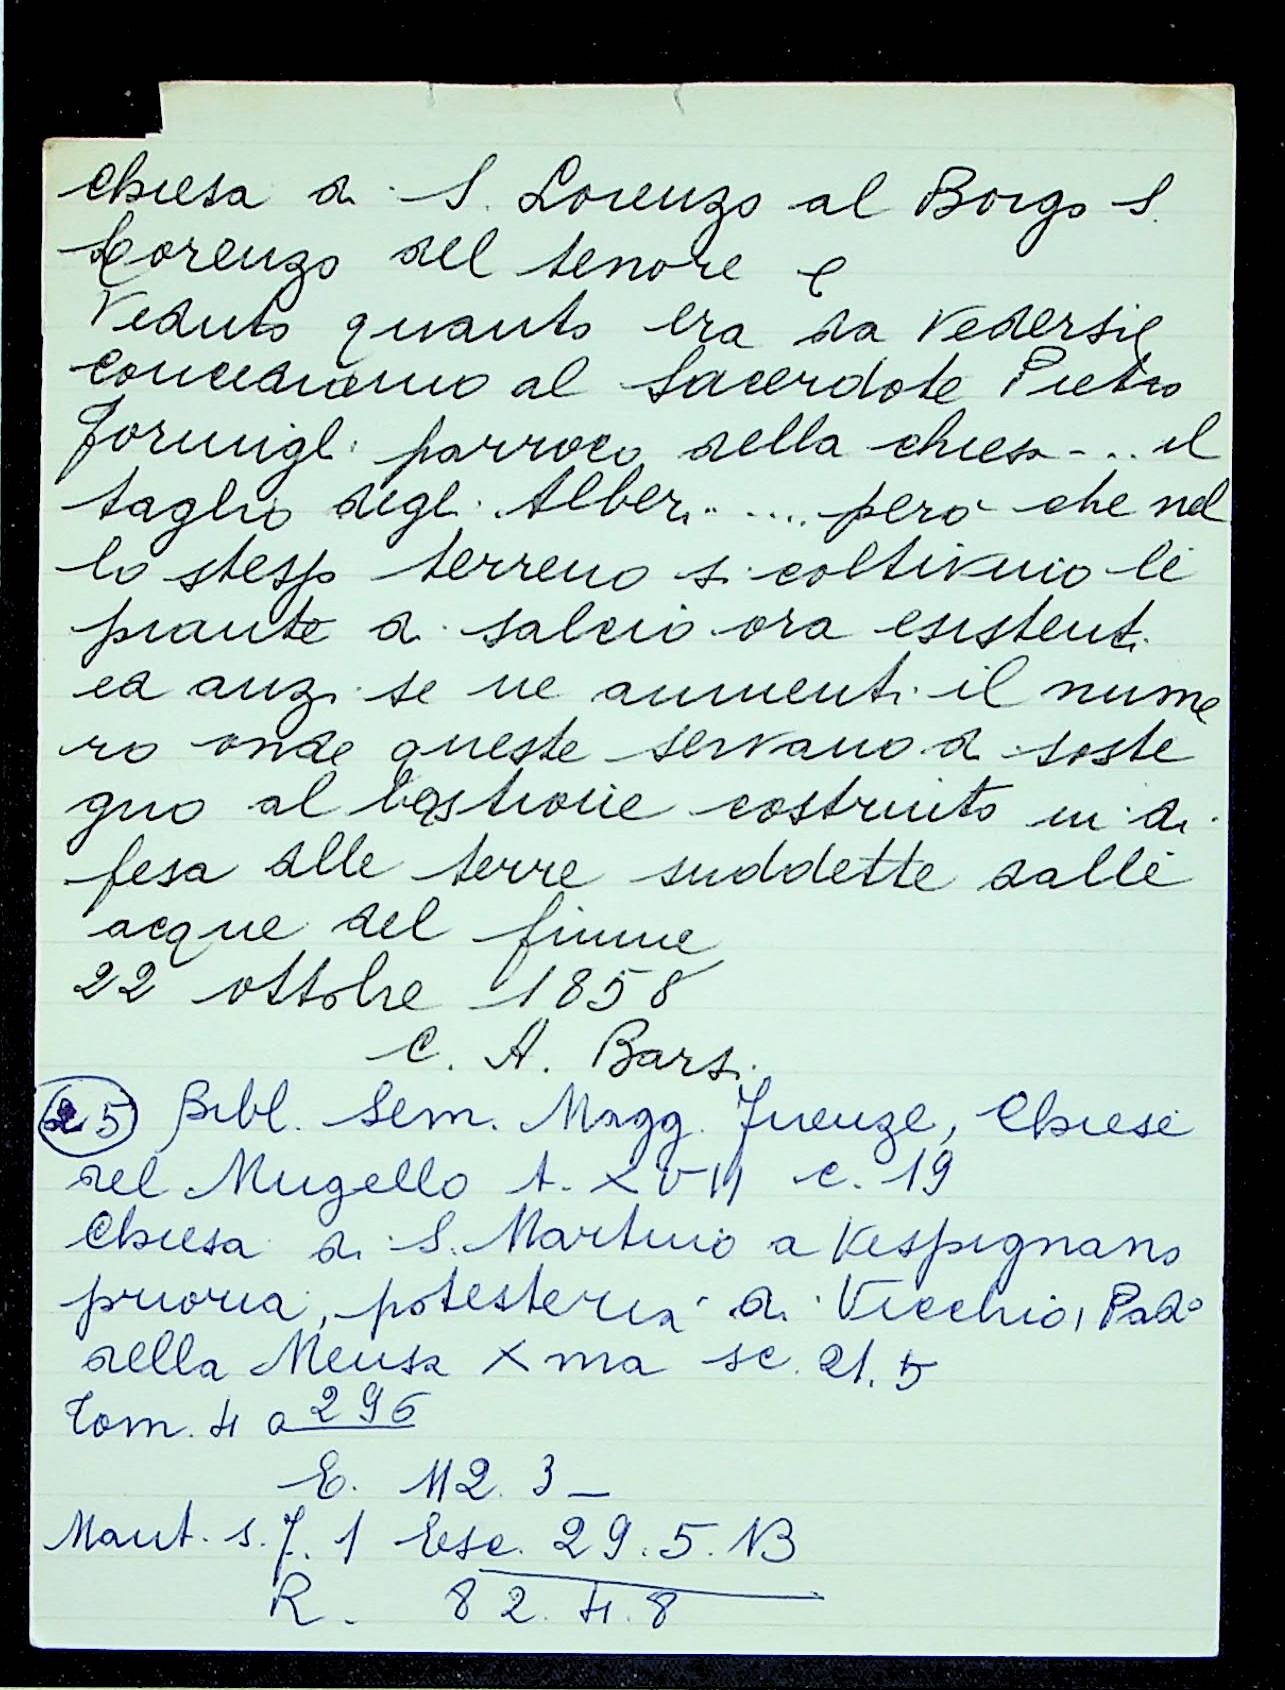 chiesa di S. Lorenzo al Borgo S.
Lorenzo del tenore e
Veduto quanto era da vedersi e
concediamo al Sacerdote Pietro
Formigli parroco della chiesa ... il
taglio degli Alberi ..... però che nel
lo stesso terreno si coltivino le
piante di salcio ora esistenti
ed anzi se ne aumenti il nume
ro onde queste servano di soste
gno al bastione costruito in di
fesa delle terre suddette dalle
acque del fiume
22 ottobre 1858
C. A. Barsi
25 Bibl. Sem. Magg. Firenze, Chiese
del Mugello t. XVII c. 19
Chiesa di S. Martino a Vespignano
prioria, potesteria di Vicchio, Pad°
della Mensa Xma sc. 21.5
Tom. 4 a 296
E. 112. 3 –
Mant. s. f. 1 Esc. 29. 5. 13
R. 82. 4. 8